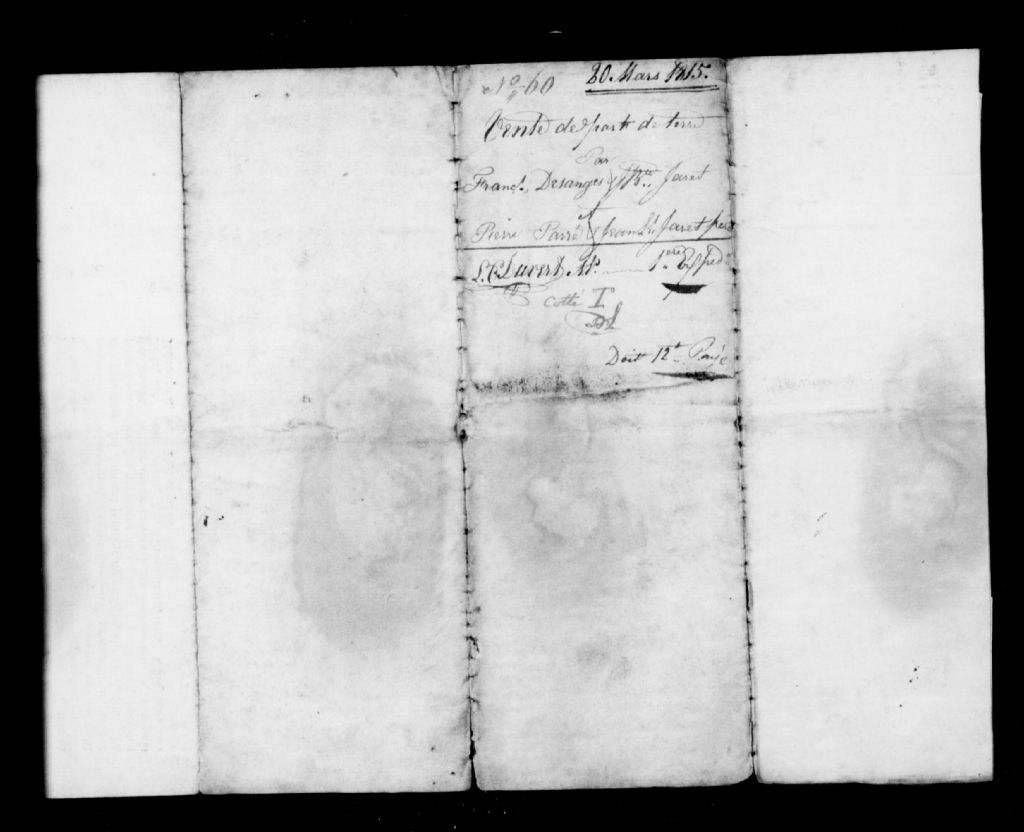 No. 60 20 Mars 1815.
Vente de part de terre
Par
Franç. Desanges & Jaret
A
Pierre Parré & Jaret
L. C. Duvert Np. 1ere Expedn
Cotté I
Doit 12# Payé